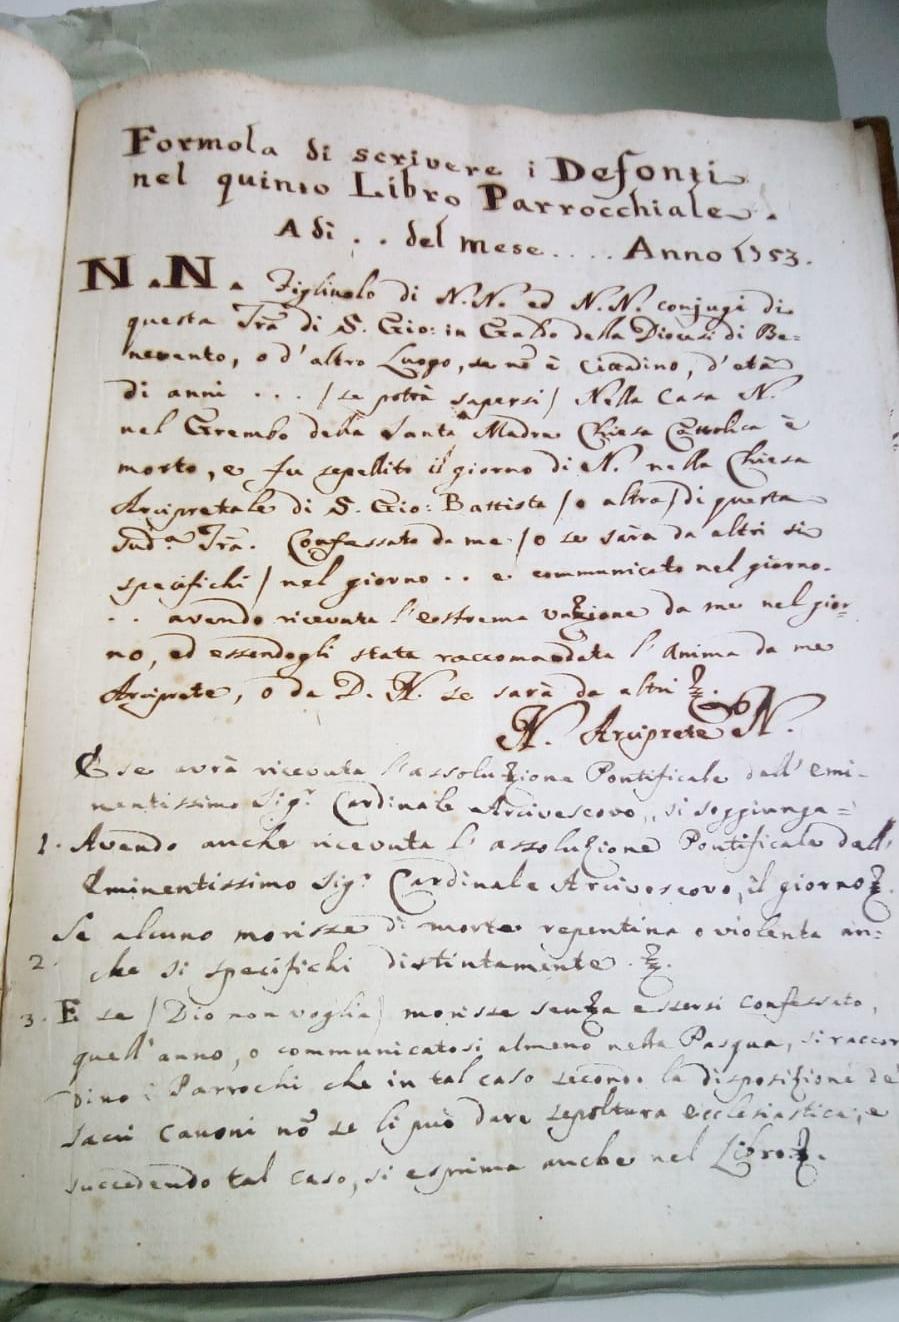 Formola di scrivere i Defonti
nel quinto Libro Parrocchiale.
A dì . . del mese..... Anno 1753.
N.N. Figliuolo di N.N. ed N.N. conjugi di
questa Trã di S. Gio: in Galdo della Diocesi di Be=
nevento, o d'altro Luogo, se nõ è Cittadino, d'età
di anni ... / se potrà sapersi / Nella Casa N.
nel Grembo della Santa Madre Chiesa Cattolica è
morto, e fu sepellito il giorno di N. nella Chiesa
Arcipretale di S. Gio: Battista / o altra / di questa
Sud.ª Trã. Confessato da me / o se sarà da altri si
specifichi / nel giorno .. e communicato nel giorno.
.. avendo ricevuta l'estrema unzione da me nel gior=
no, ed essendogli stata raccomandata l'Anima da me
Arciprete, o da D. N. se sarà da altri
N. Arciprete N.
E se avrà ricevuta l'assoluzione Pontificale dall'Emi-
nentissimo Sig.r Cardinale Arcivescovo, si soggiunga =
1. Avendo anche ricevuta l'assoluzione Pontificale dall'
Eminentissimo Sig.r Cardinale Arcivescovo, il giorno
Se alcuno morisse di morte repentina o violenta an=
2. che si specifichi distintamente.
3. E se / Dio non voglia / morisse senza essersi confessato,
quell'anno, o communicatosi almeno nella Pasqua, si raccor
dino i Parrochi che in tal caso secondo la disposizione de'
Sacri Canoni nõ se li può dare sepoltura ecclesiastica, e
succedendo tal caso, si esprima anche nel Libro.